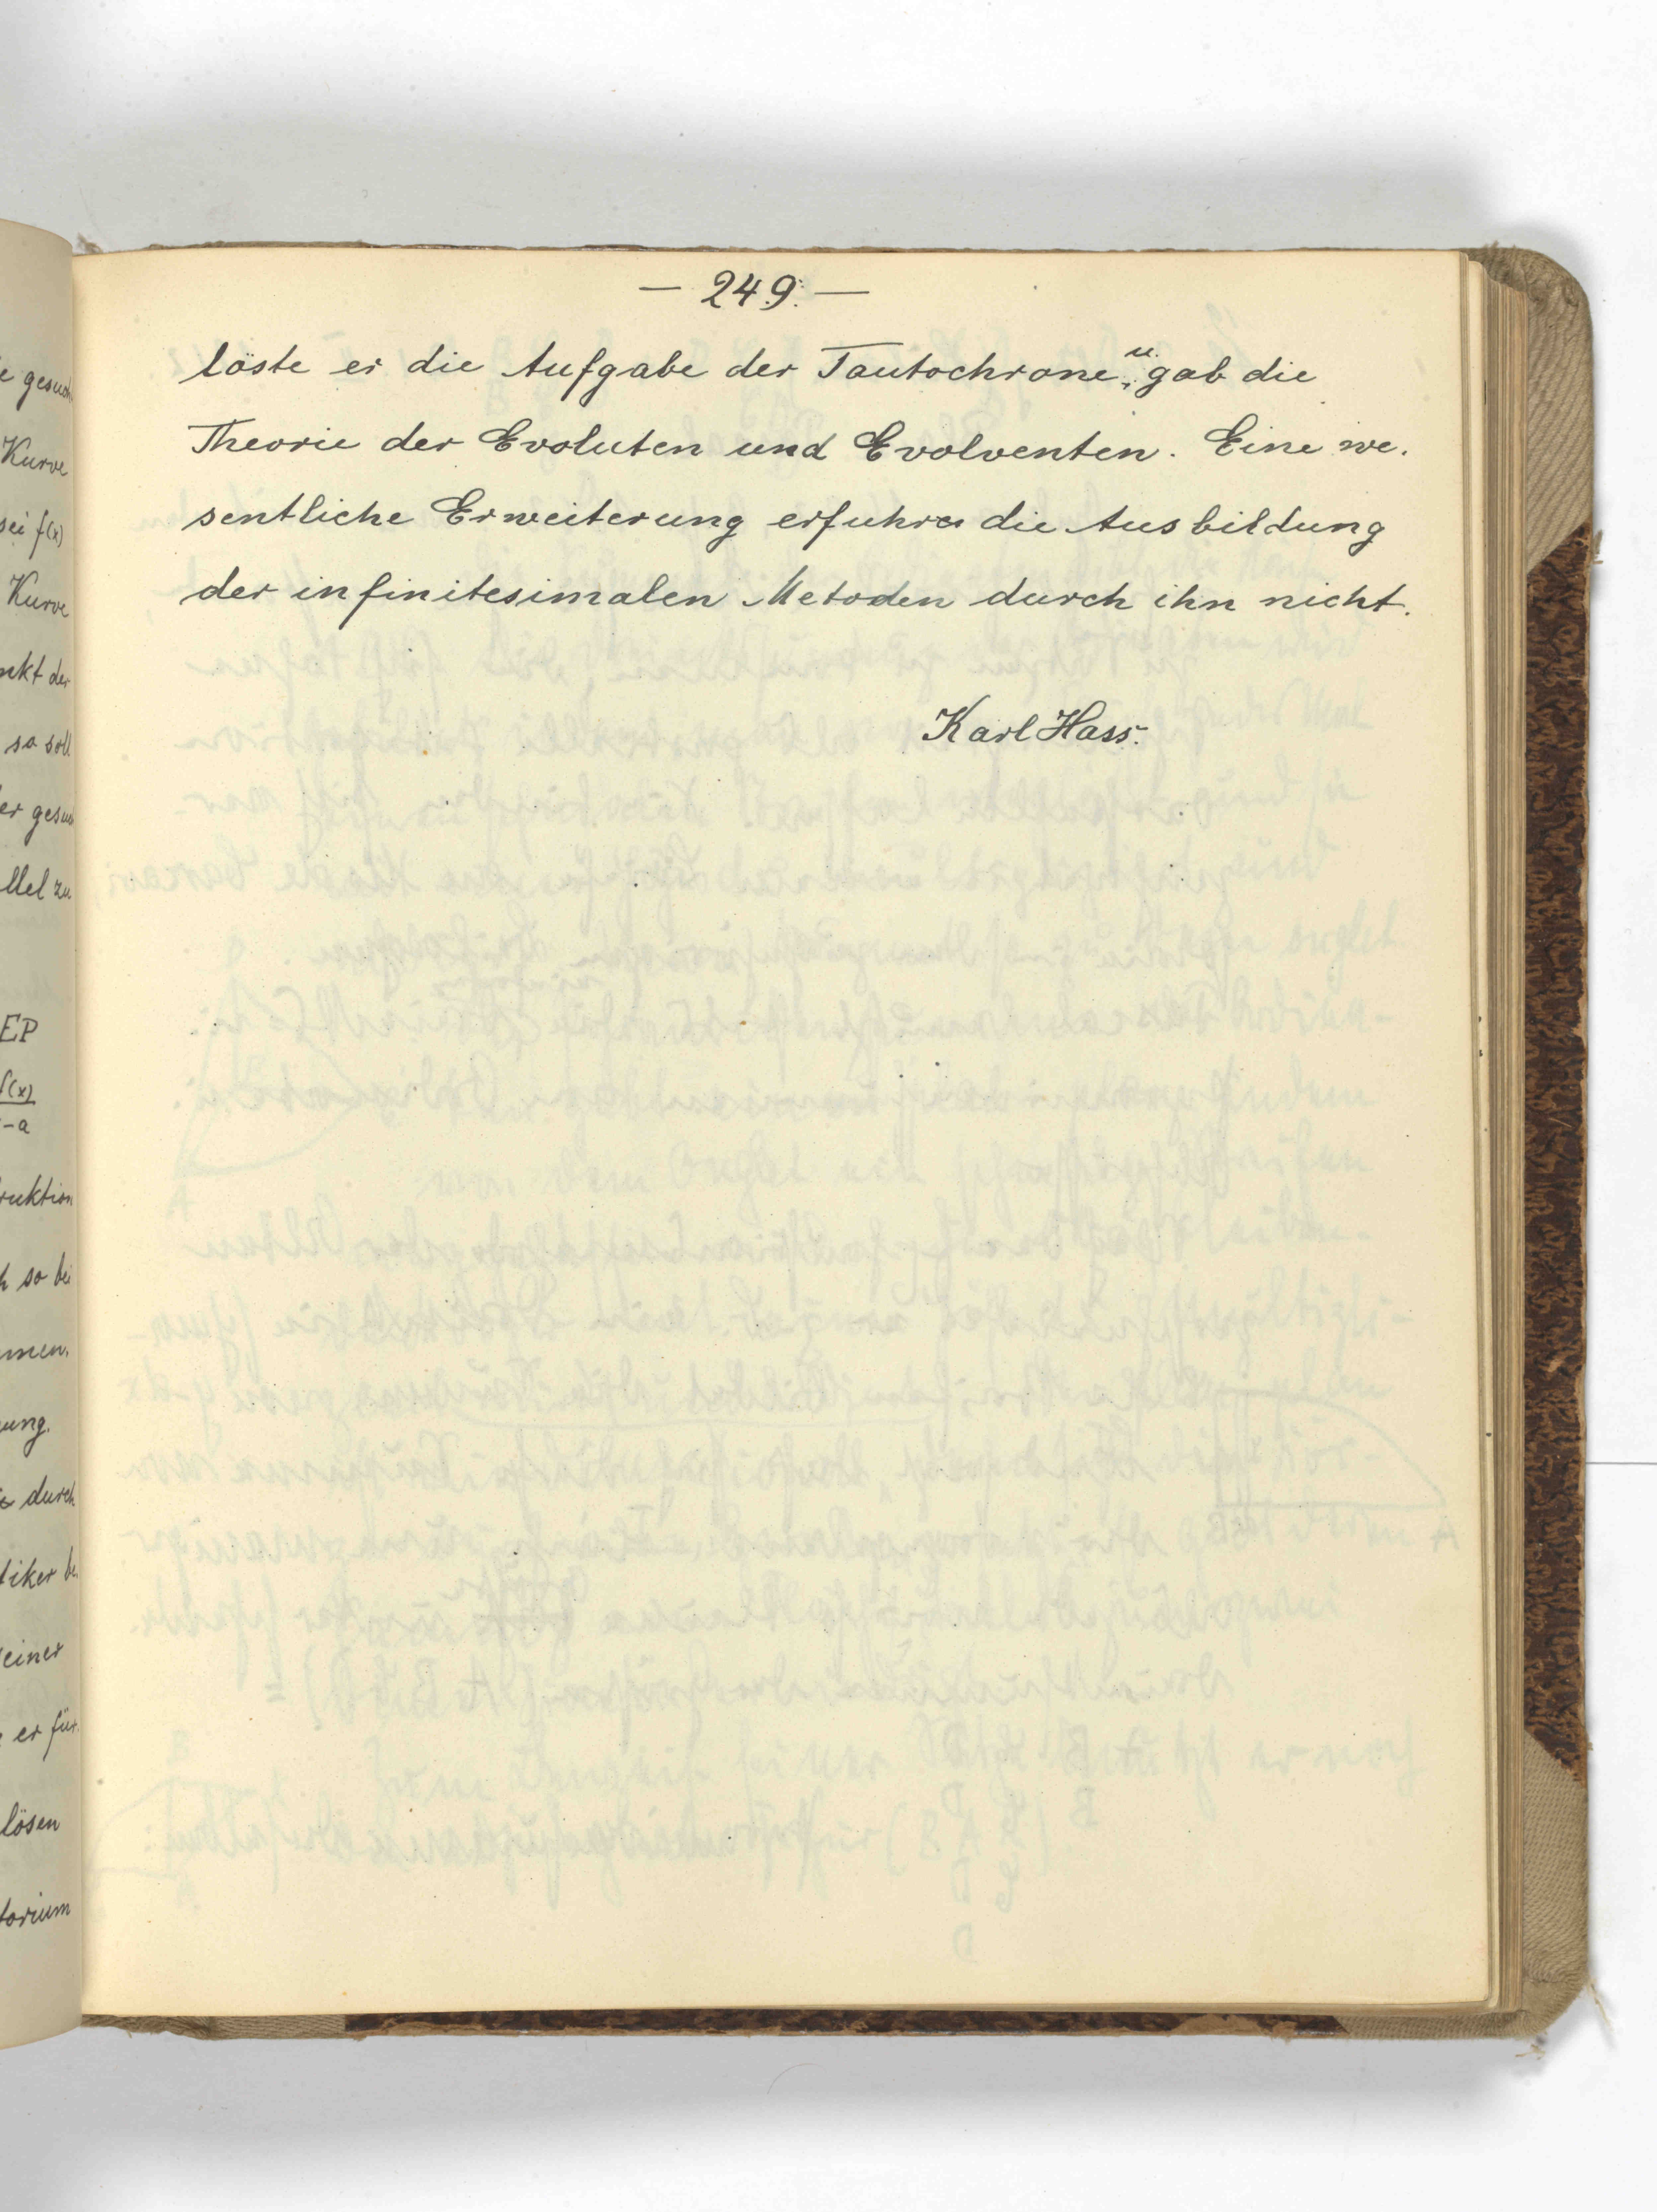 — 249. —
löste er die Aufgabe der Tautochrone, u. gab die
Theorie der Evoluten und Evolventen. Eine we-
sentliche Erweiterung erfuhr die Ausbildung
der infinitesimalen Metoden durch ihn nicht.
Karl Hass.
Kurve
sei f(x)
Kurve
nkt der
so soll
llel zu
EP
f(x)
-a
ruktion
so bei
durch
einer
er für
lösen
torium